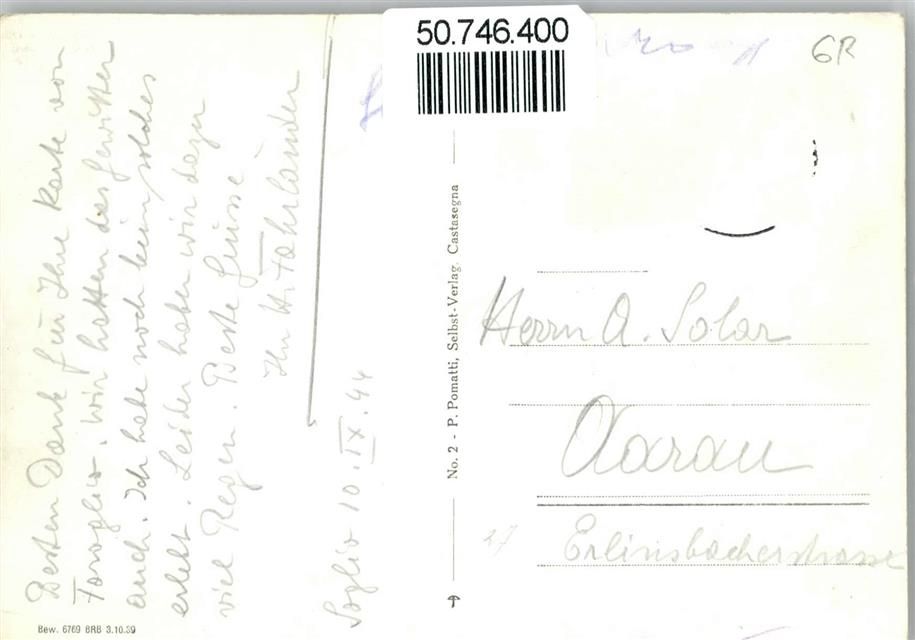 50.746.400
GR
Besten Dank für Ihre Karte von
Foroglio. Wir hatten das Gewitter
auch. Ich habe noch kein solches
erlebt. Leider habe wir dazu
viel Regen. Beste Grüsse
Ihr H. Fahrländer
Soglio 10.IX.44
No. 2 - P. Pomatti, Selbst-Verlag. Castasegna
Herrn A. Solar
Aarau
27 Erlinsbacherstrasse
Bew. 6769 BRB 3.10.39